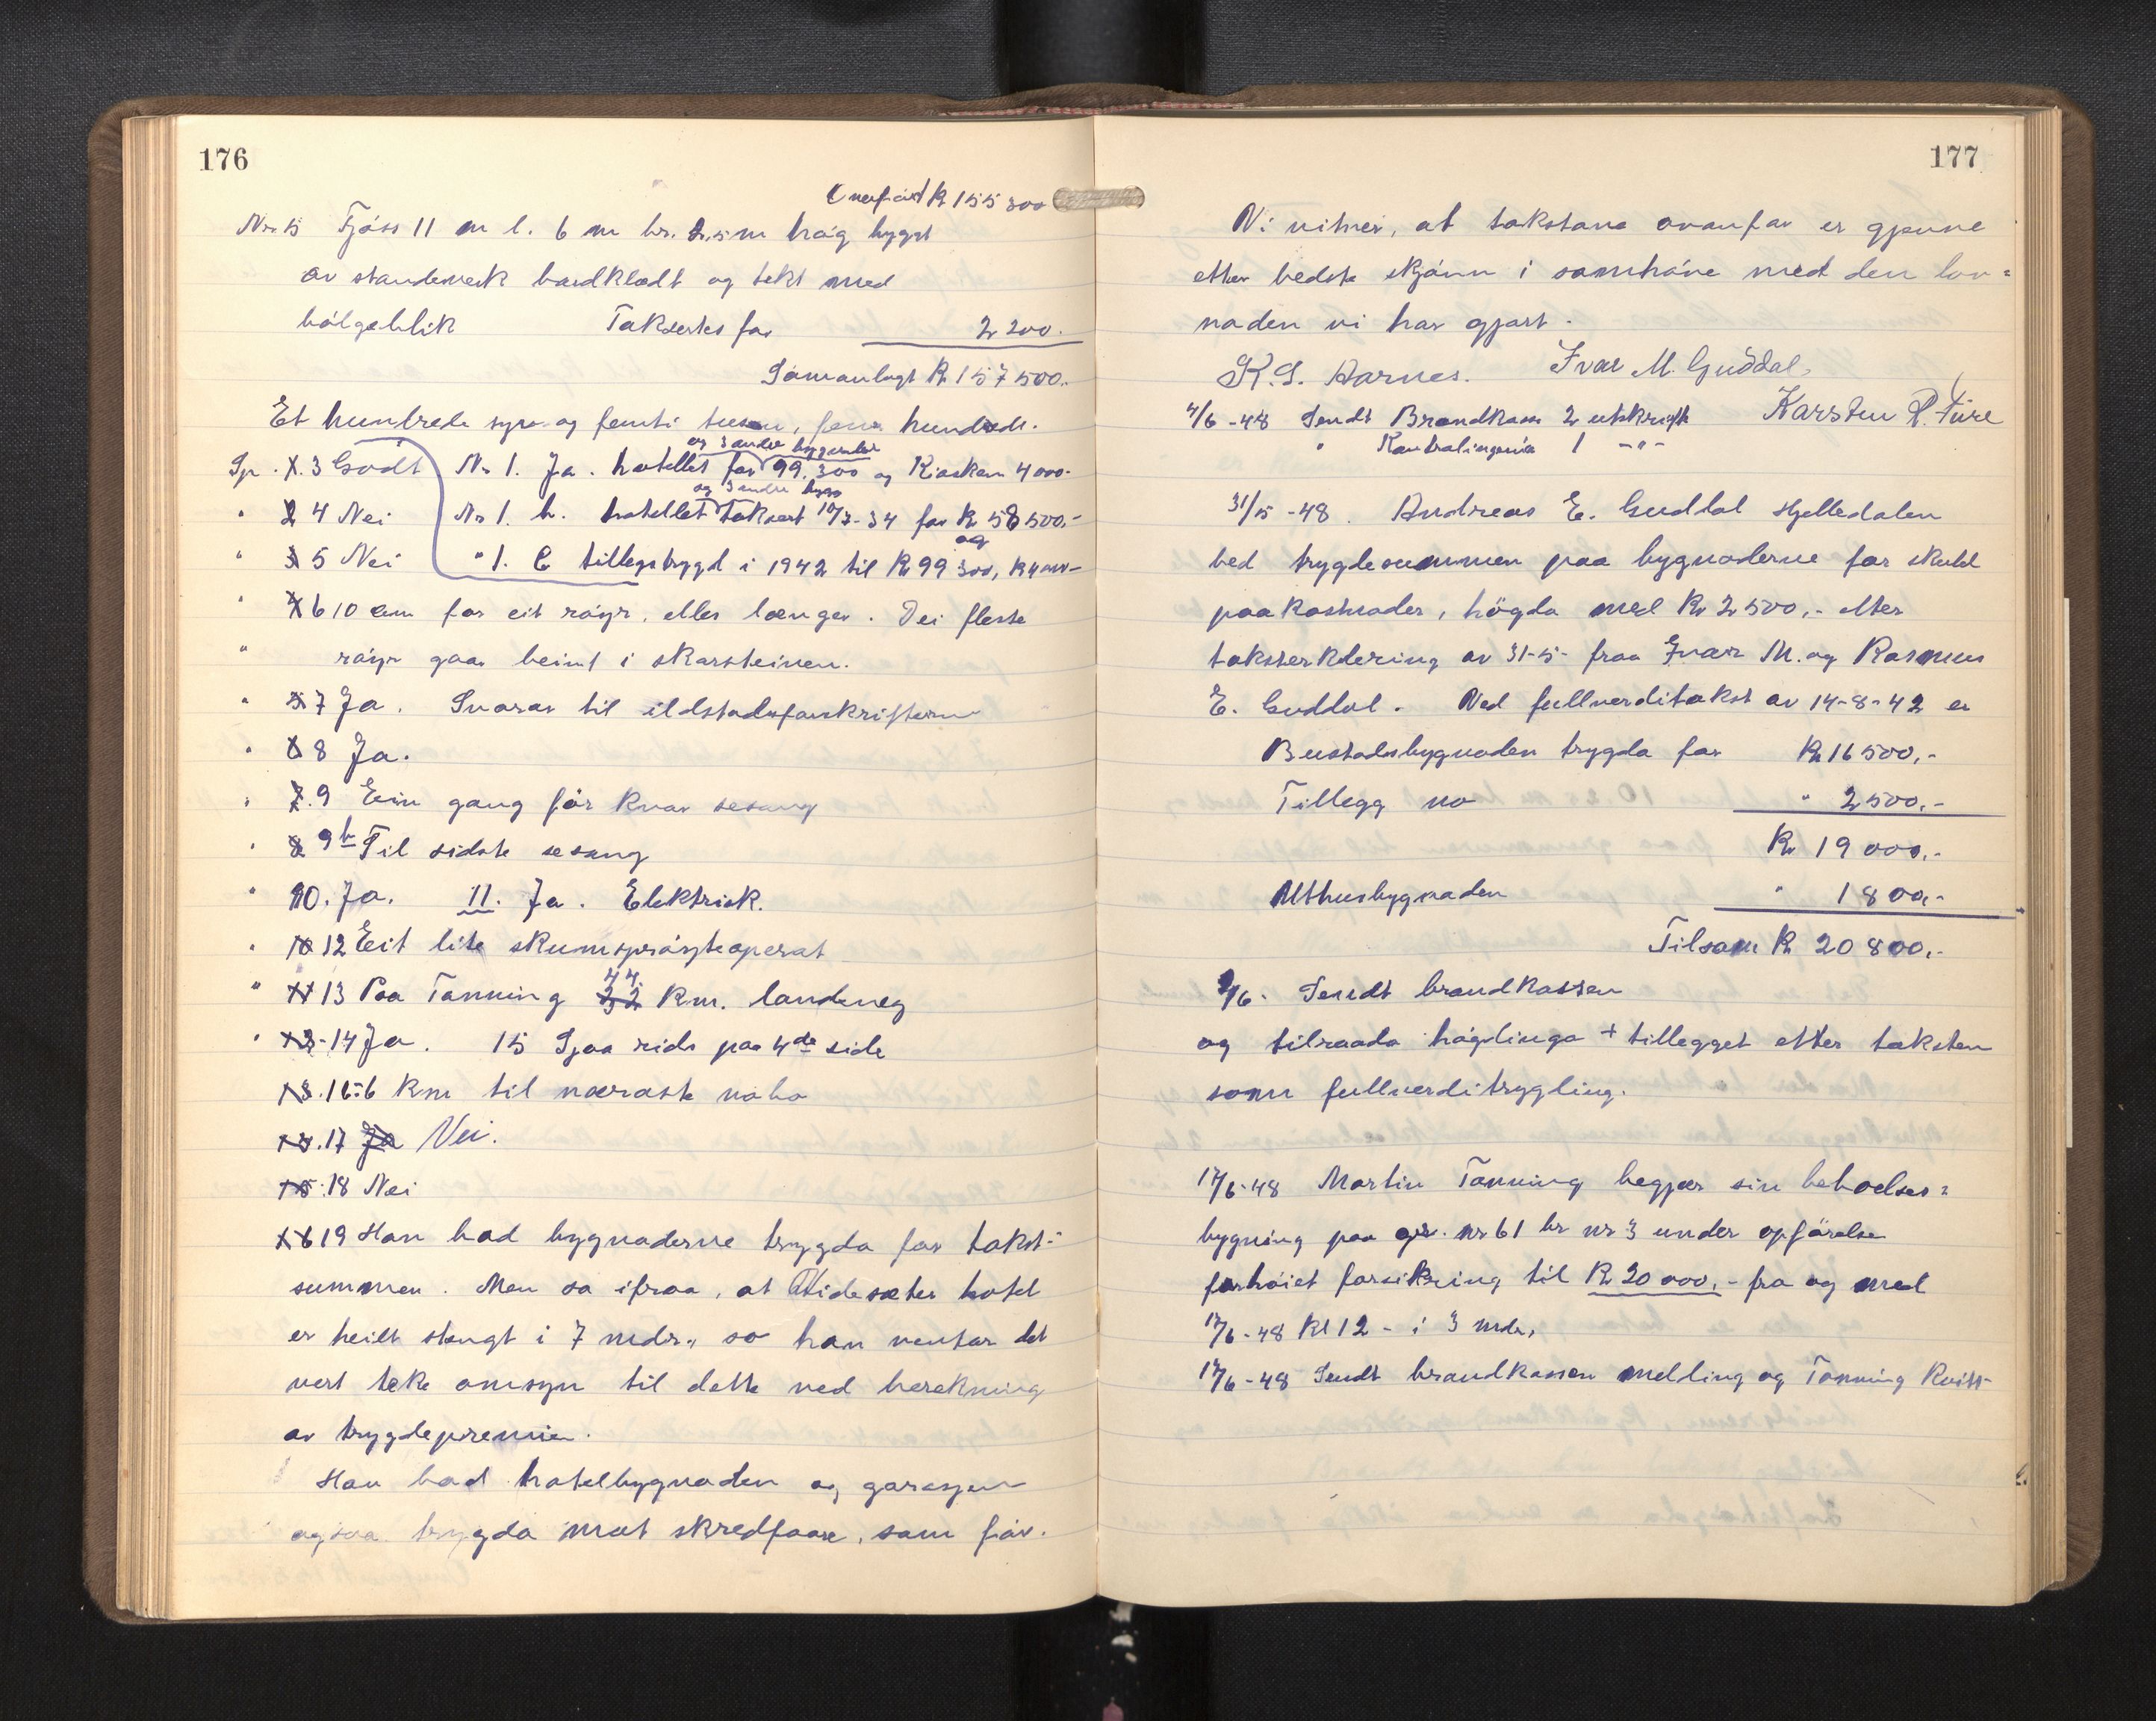 176
Overført Kr 155 300
Nr. 5 Fjøs 11 m l. 6 m br. 2,5 m høg bygst
av standerverk bordklædt og tekt med
bølgeblik Takserkes for 2 200.
Samanlagt Kr 157 500.
Et hundrede syv og femti tusen, fem hundrede.
og 3 andre bygninder
Sp. 1. 3 Godt Nr 1. Ja. hotellet for 99.300 og Kiosken 4 000.
og 3 andre bygn
" 2 4 Nei Nr 1. b. hotellet taksert 10/7-34 for Kr 58 500,-
og
" 3 5 Nei " 1. c tillegstrygd i 1942 til Kr 99 300, Kr 4000-
" 4 6 10 cm for eit røyr, eller længer. Dei fleste
" røyr gaar beint i skorsteinen.
" 5 7 Ja. Svarar til ildstadsforskriftern
" 6 8 Ja.
" 7. 9 Ein gang før kvar sesang
" 8 9b Til sidste sesang
" 10. Ja. 11. Ja. Elektrisk.
" 10 12 Eit lite skumsprøyteaperat
44
" 11 13 Paa Tonning 32 Km. landeveg
" 12-14 Ja. 15 Sjaa rids paa 4de side
13. 16: 6 Km til næraste nabo
14. 17 Ja Nei.
15. 18 Nei
16 19 Han bad bygnaderne trygda for takst-
summen. Men sa ifraa, at Videseter hotel
er heilt stengt i 7 mdr., so han ventar det
vert teke omsyn til dette ved berekning
av trygdepremie.
Han bad hotelbygnaden og garasjen
ogsaa trygda mot skredfaare, som før.
177
Vi vitner, at takstane ovanfor er gjevne
etter bedste skjønn i samhøve med den lov=
naden vi har gjort.
K. S. Aarnes. Ivar M. Guddal.
4/6 -48 Sendt Brandkassa 2 utskrift Karsten R. Fure
" Kontrolingeniø 1 -"-
31/5 -48. Andreas E. Guddal Hjelledalen
bed trygdesummen paa bygnaderne for skuld
paakostnader, høgda med Kr 2 500,- etter
taksterklering av 31-5- fraa Ivar M. og Rasmus
E. Guddal. Ved fullverditakst av 14-8-42 er
Bustadsbygnaden trygda for Kr 16 500,-
Tillegg no " 2 500,-
Kr 19 000,-
Uthusbygnaden " 1 800,-
Tilsam Kr 20 800,-
2/6. Sendt brandkassen
og tilraada høgdinga + tillegget etter taksten
som fullverditrygling.
17/6-48 Martin Tonning begjær sin beboelses=
bygning paa gr. nr 61 br nr 3 under opførelse
forhøiet forsikring til Kr 20 000,- fra og med
17/6-48 Kl 12 - i 3 mdr,
17/6-48 Sendt brandkassen melding og Tonning Kvitt-